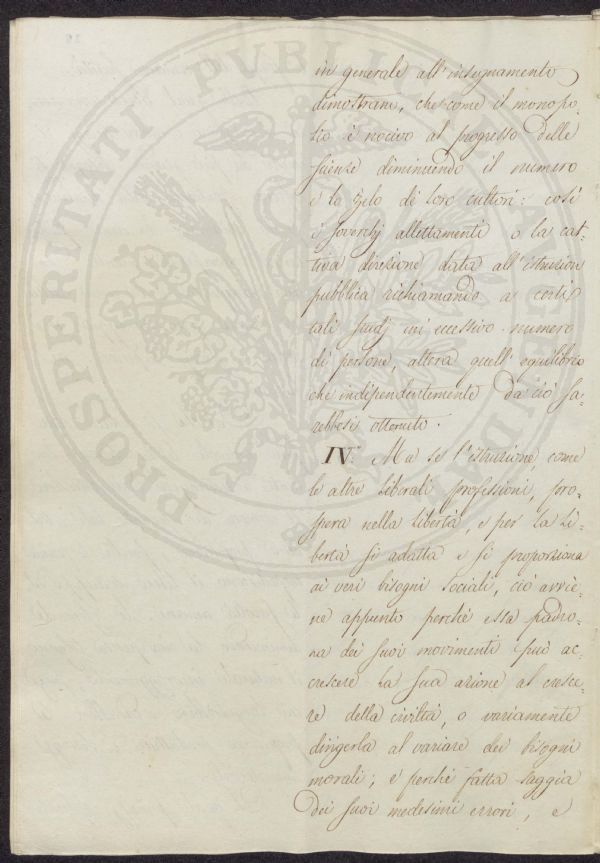 in generale all'insegnamento
dimostrano, che come il monopo-
lio è nocivo al progresso delle
scienze diminuendo il numero
e lo zelo de' loro cultori: così
i soverchj allettamenti o la cat-
tiva direzione data all'istruzion
pubblica richiamando a certi
tali studj un eccessivo numero
di persone, altera quell'equilibrio
che indipendentemente da ciò sa-
rebbesi ottenuto.
IV. Ma se l'istruzione, come
le altre liberali professioni, pro-
spera nella libertà, e per la li-
bertà si adatta e si proporziona
ai veri bisogni sociali, ciò avvie-
ne appunto perchè essa padro-
na dei suoi movimenti può ac-
crescere la sua azione al cresce-
re della civiltà, o variamente
dirigerla al variare dei bisogni
morali; e perchè fatta saggia
dei suoi medesimi errori, e
PROSPERITATI PUBLICAE AUGENDAE